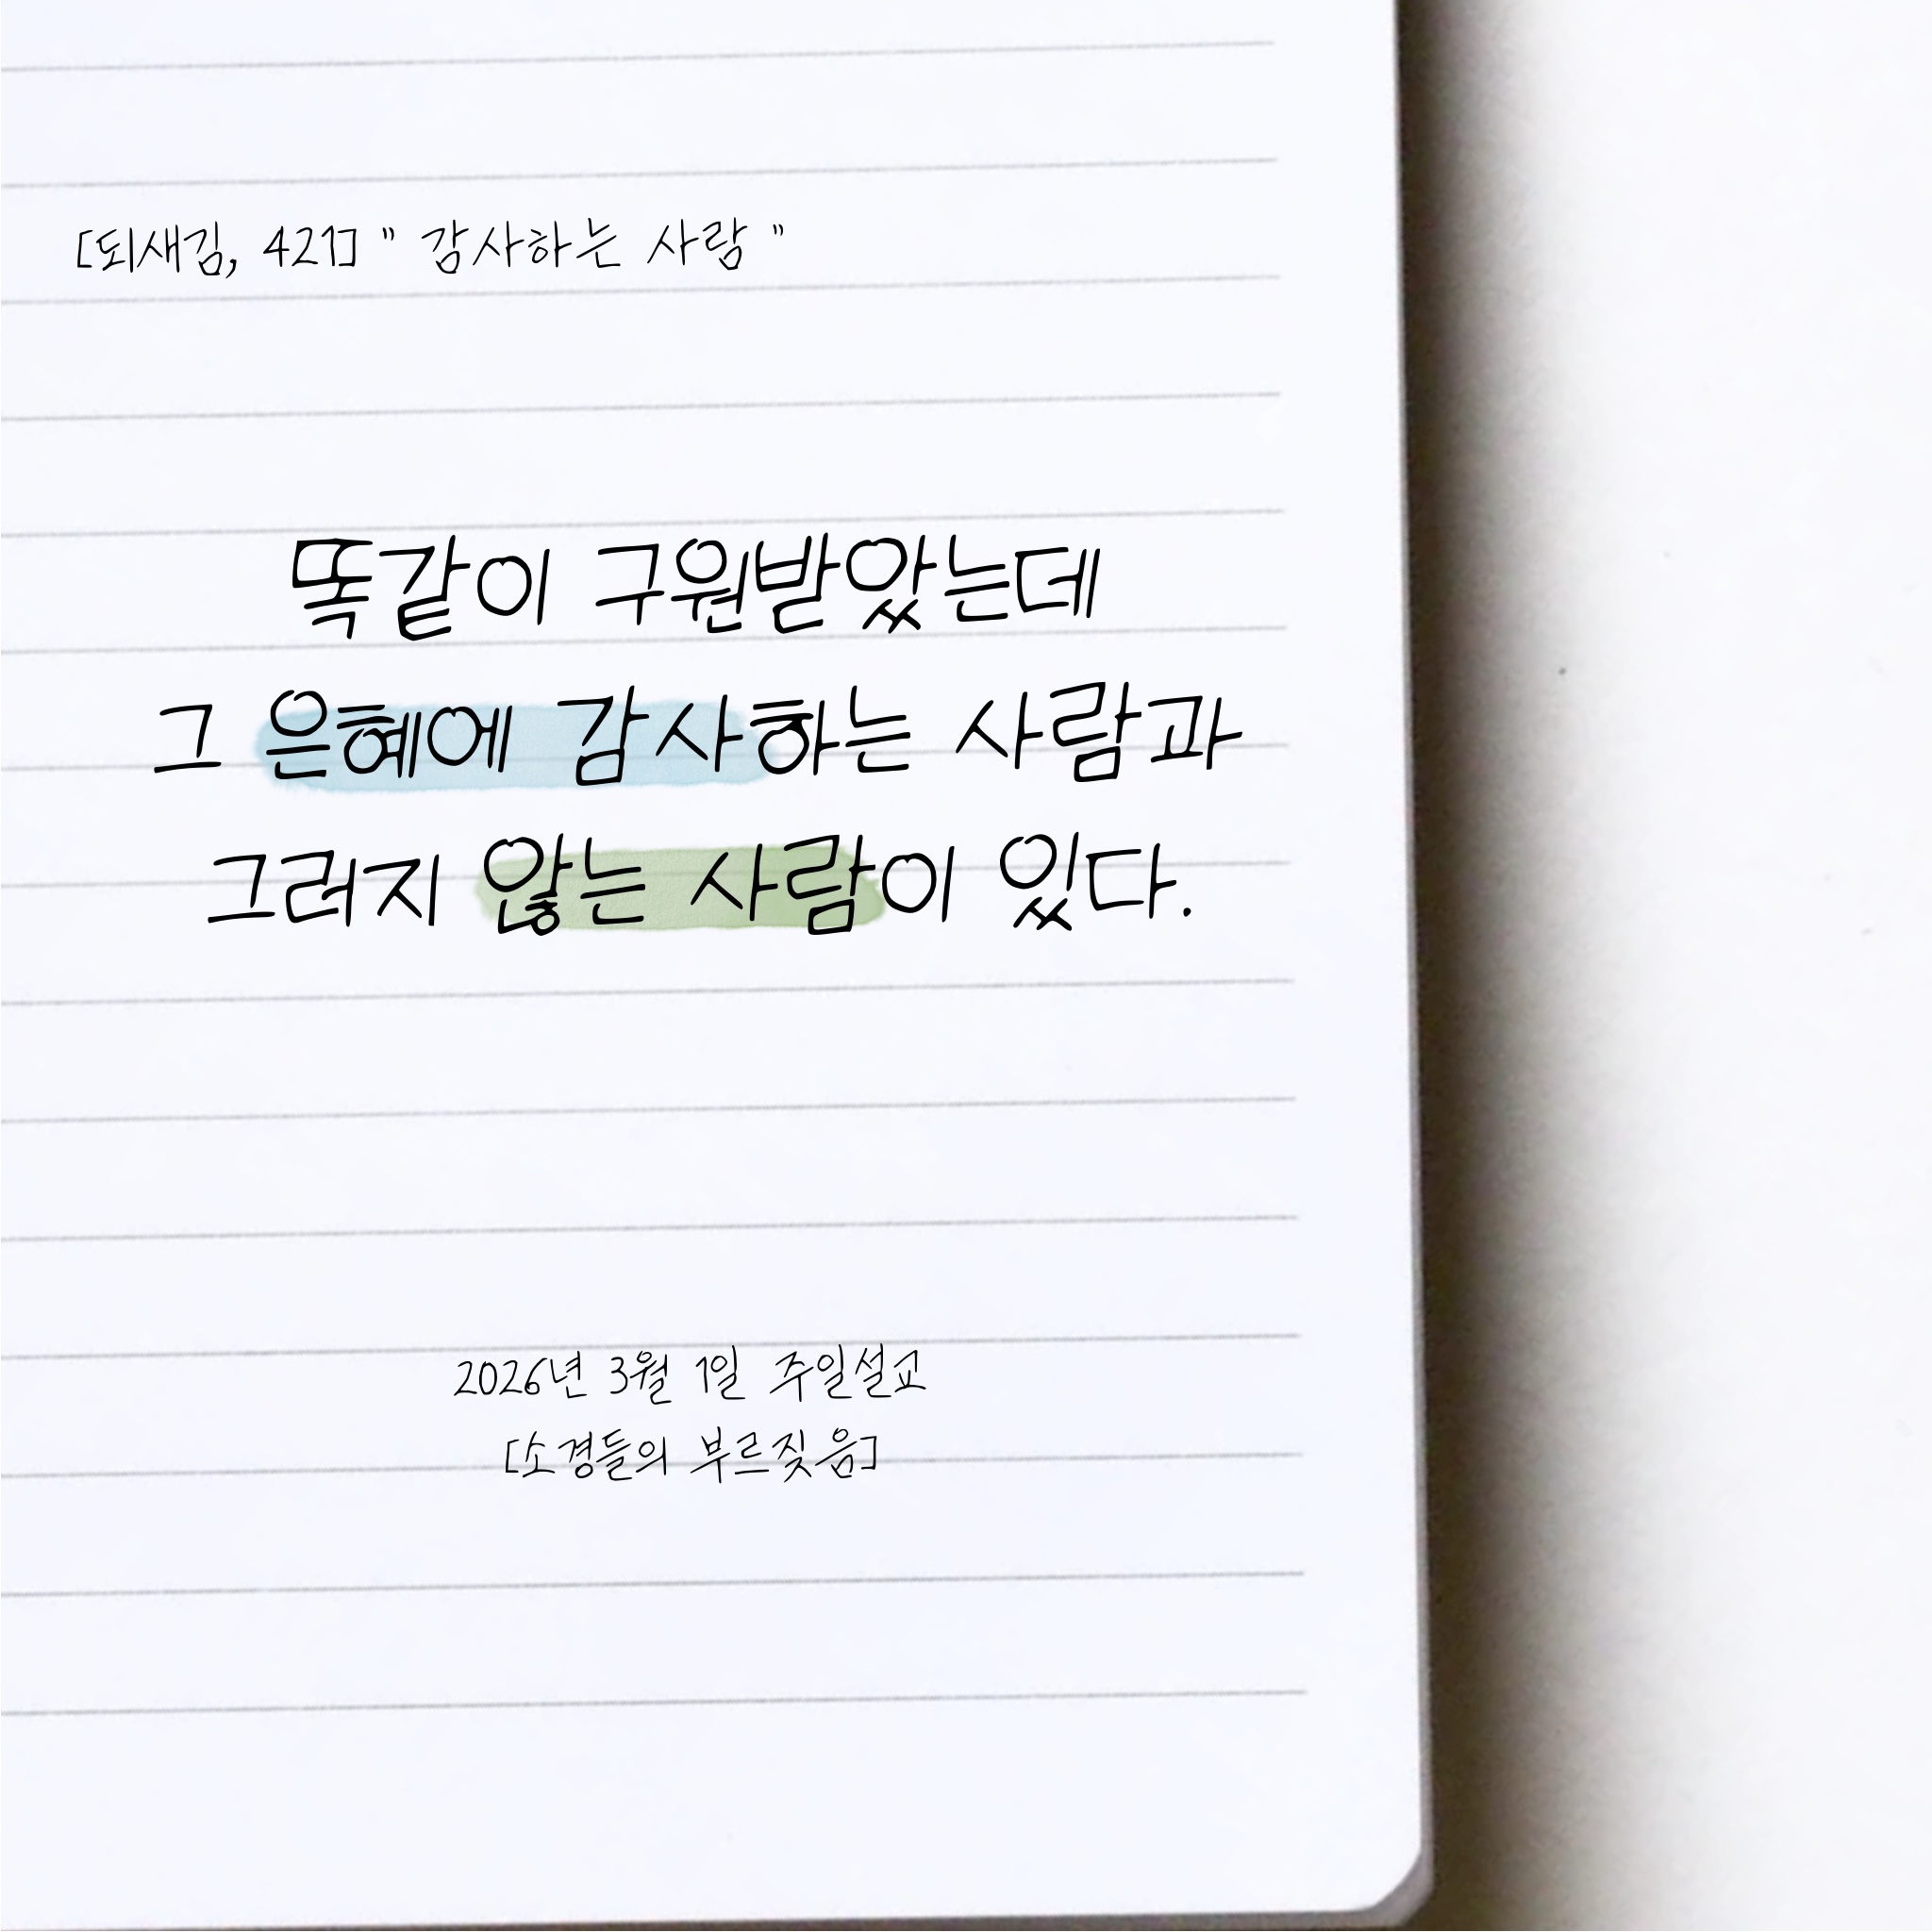 [되새김, 421] " 감사하는 사람 "
똑같이 구원받았는데
그 은혜에 감사하는 사람과
그러지 않는 사람이 있다.
2026년 3월 1일 주일설교
[소경들의 부르짖음]